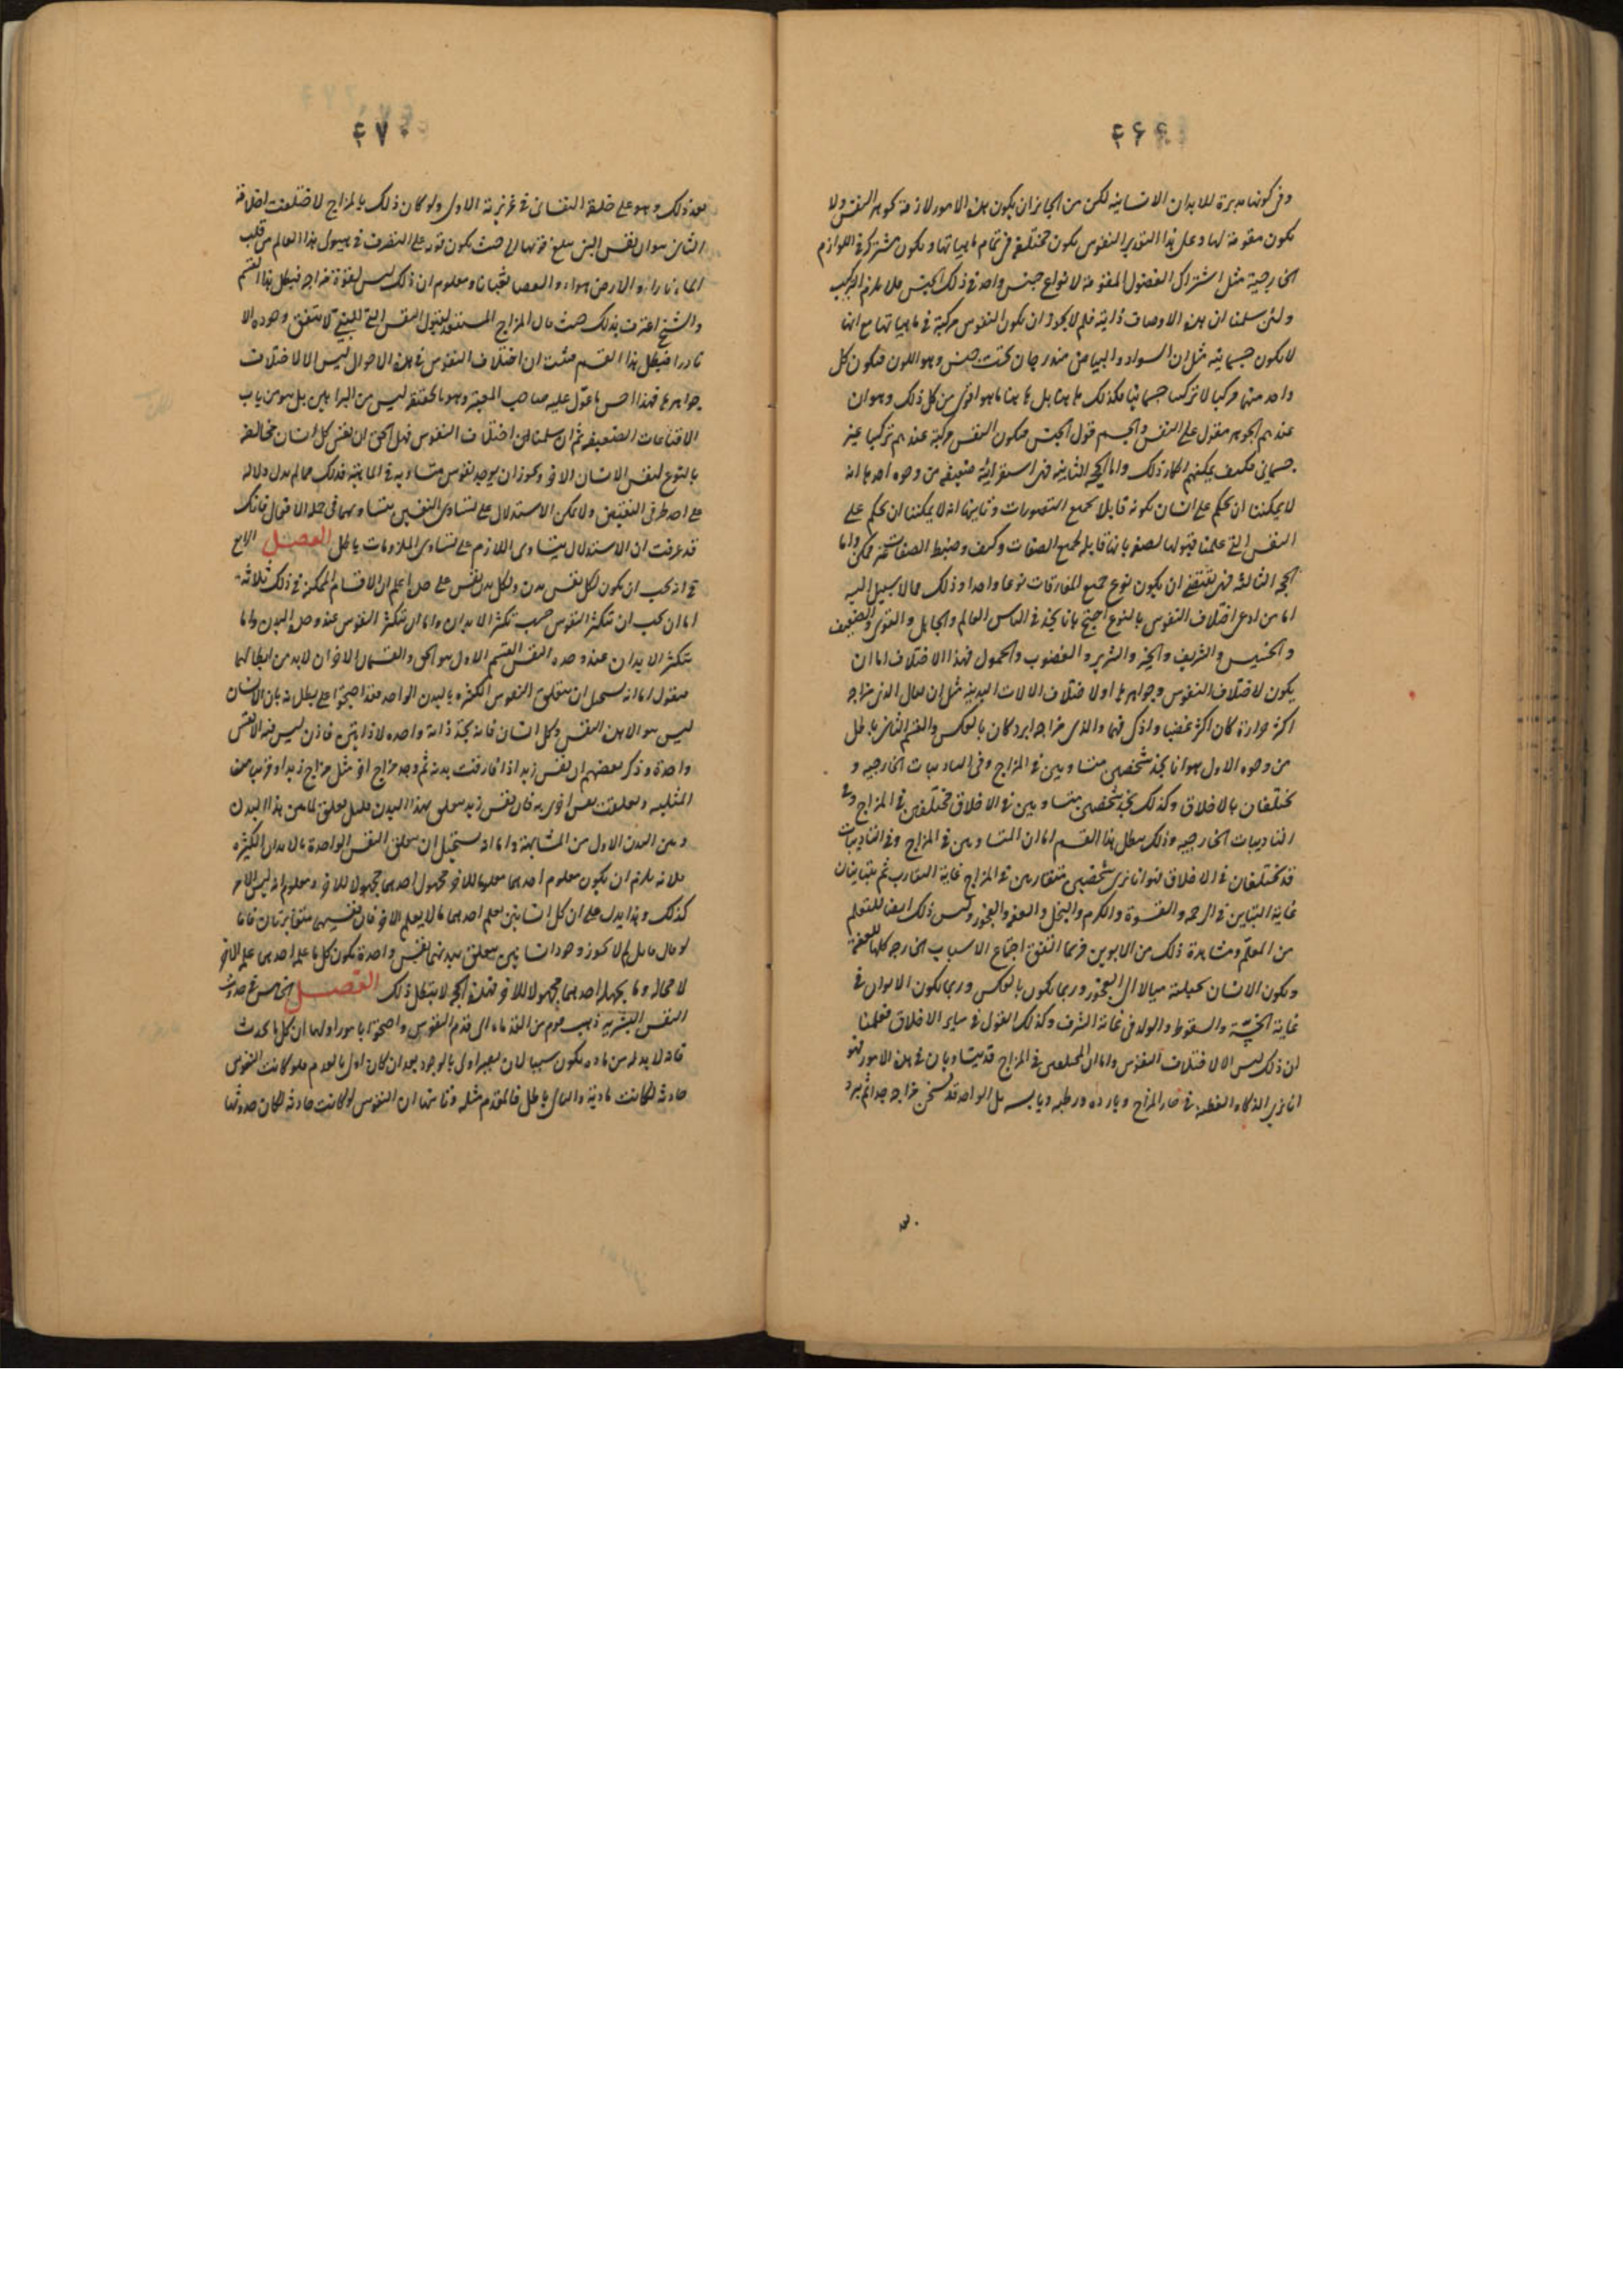 ٤٦٩
وفى كونها مدبرة للابدان الانسانيه لكن من الجايز ان يكون هذه الامور لازمة لجوهر النفس ولا
يكون مقومة لها وعلى هذا التقدير النفوس يكون مختلفة فى تمام ماهياتها ويكون مشتركة فى اللوازم
الخارجية مثل اشتراك الفصول المقومة لانواع جنس واحد فى ذلك الجنس فلا يلزم التركيب
ولئن سلمنا ان هذه الاوصاف ذاتية فلم لا يجوز ان يكون النفوس مركبة فى ماهياتها مع انها
لا يكون جسمانيه مثل ان السواد والبياض مندرجان تحت جنس وهو اللون فيكون كل
واحد منهما مركبا لا تركيبا جسمانيا فكذلك ها هنا بل ها هنا ما هو اقوى من كل ذلك وهو ان
عندهم الجوهر مقول على النفس والجسم قول الجنس فيكون النفس مركبة عندهم تركيبا غير
جسمانى فكيف يمكنهم انكار ذلك واما الحجة الثانية فهى استقرائية ضعيفه من وجوه احدها انه
لا يمكننا ان نحكم على انسان بكونه قابلا لجميع التصورات وثانيها انه لا يمكننا ان نحكم على
النفس التى علمنا قبولها لصفة بانها قابلة لجميع الصفات وكيف وضبط الصفات غير ممكن واما
الحجة الثالثة فهى تقتضى ان يكون نوع جميع المفارقات نوعا واحدا وذلك مما لا سبيل اليه
اما من ادعى اختلاف النفوس بالنوع احتج بانا نجد فى الناس العالم والجاهل والقوى والضعيف
والخسيس والشريف والخير والشرير والغضوب والحمول فهذا الاختلاف اما ان
يكون لاختلاف النفوس وجواهرها او لاختلاف الالات البدنية مثل ان يقال الذى مزاجه
اكثر حرارة كان اكثر غضبا واذكى فهما والذى مزاجه ابرد كان بالعكس والقسم الثانى باطل
من وجوه الاول هو انا نجد شخصين متساويين فى المزاج وفى التاديبات الخارجيه و
يختلفان بالاخلاق وكذلك نجد شخصين متساويين فى الاخلاق مختلفين فى المزاج وفى
التاديبات الخارجيه وذلك يبطل هذا القسم اما ان المتساويين فى المزاج وفى التاديبات
قد يختلفان فى الاخلاق فهو انا نرى شخصين متقاربين فى المزاج غاية التقارب ثم يتباينان
غاية التباين فى الرحمة والقسوة والكرم والبخل والعفة والفجور وليس ذلك ايضا للتعلم
من المعلم ومشاهدة ذلك من الابوين فربما اتفق اجتماع الاسباب الخارجه كلها للعفة
ويكون الانسان بجبلته ميالا الى الفجور وربما يكون بالعكس وربما يكون الابوان فى
غاية الخسة والسقوط والولد فى غاية الشرف وكذلك القول فى ساير الاخلاق فعلمنا
ان ذلك ليس الا لاختلاف النفوس واما ان المختلفين فى المزاج قد يتساويان فى هذه الامور فهو
انا نرى الذكاء والفطنة فى حار المزاج وبارده ورطبه ويابسه بل الواحد قد يسخن مزاجه جدا ثم يبرد
٤٧٠
بعد ذلك وهو على خلقه النفسانى فى غريزته الاول ولو كان ذلك بالمزاج لاختلفت اخلاقه
الثانى هو ان نفس النبى يبلغ قوتها الى حيث يكون قوية على التصرف فى هيولى هذا العالم من قلب
الماء نارا والارض هواء والعصا ثعبانا ومعلوم ان ذلك ليس لقوة مزاجه فبطل هذا القسم
والشيخ اعترف بذلك حيث قال المزاج المستعد لقبول النفس التى للنبى لا يتفق وجوده الا
نادرا فبطل هذا القسم فثبت ان اختلاف النفوس فى هذه الاحوال ليس الا لاختلاف
جواهرها فهذا احسن ما عول عليه صاحب المعتبر وهو بالحقيقة ليس من البراهين بل هو من باب
الاقناعات الضعيفة ثم ان سلمنا لهم اختلاف النفوس فهل الحق ان نفس كل انسان مخالفة
بالنوع لنفس الانسان الاخر ويجوز ان يوجد نفوس متساوية فى الماهية فذلك مما لم يدل دلالة
على احد طرفى النقيضين ولا يمكن الاستدلال على تساوى النفسين بتساويهما فى جملة الافعال فانك
قد عرفت ان الاستدلال بتساوى اللازم على تساوى الملزومات باطل الفصل الرابع
فى انه يجب ان يكون لكل نفس بدن ولكل بدن نفس على حدة اعلم ان الاقسام الممكنة فى ذلك ثلاثه
اما ان يجب ان تتكثر النفوس حسب تكثر الابدان واما ان تتكثر النفوس عند وحدة البدن واما
تتكثر الابدان عند وحدة النفس القسم الاول هو الحق والقسمان الاخران لا بد من ابطالهما
فنقول اما انه يستحيل ان يتعلق النفوس الكثيرة بالبدن الواحد فقد احتجوا على بطلانه بان الانسان
ليس هو الا هذه النفس وكل انسان فانه يجد ذاته واحده لا ذاتين فاذن ليس فيه الا نفس
واحدة وذكر بعضهم ان نفس زيد اذا فارقت بدنه ثم وجد مزاج اخر مثل مزاج زيد او قريب من
المثليه وتعلقت نفس اخرى به فان نفس زيد يتعلق بهذا البدن مثل تعلق لما بين هذا البدن
وبين البدن الاول من المشابهة واما انه يستحيل ان يتعلق النفس الواحدة بالابدان الكثيره
فلانه يلزم ان يكون معلوم احدهما معلوما للاخر مجهول احدهما مجهولا للاخر ومعلوم انه ليس الامر
كذلك وهذا يدل على ان كل انسانين يعلم احدهما ما لا يعلم الاخر فان نفسيهما متغايرتان فاما
لو قال قائل لم لا يجوز وجود انسانين يتعلق ببدنيهما نفس واحدة يكون كل ما علمه احدهما علمه الاخر
لا محالة وما يجهله احدهما مجهولا للاخر فهذه الحجة لا تبطل ذلك الفصل الخامس فى حدوث
النفس البشريه ذهب قوم من القدماء الى قدم النفوس واحتجوا بامور اولها ان كل ما يحدث
فانه لا بد له من مادة يكون سببا لان يصير اولى بالوجود بعد ان كان اولى بالعدم فلو كانت النفوس
حادثة لكانت مادية والتالى باطل فالمقدم مثله وثانيها ان النفوس لو كانت حادثه لكان حدوثها